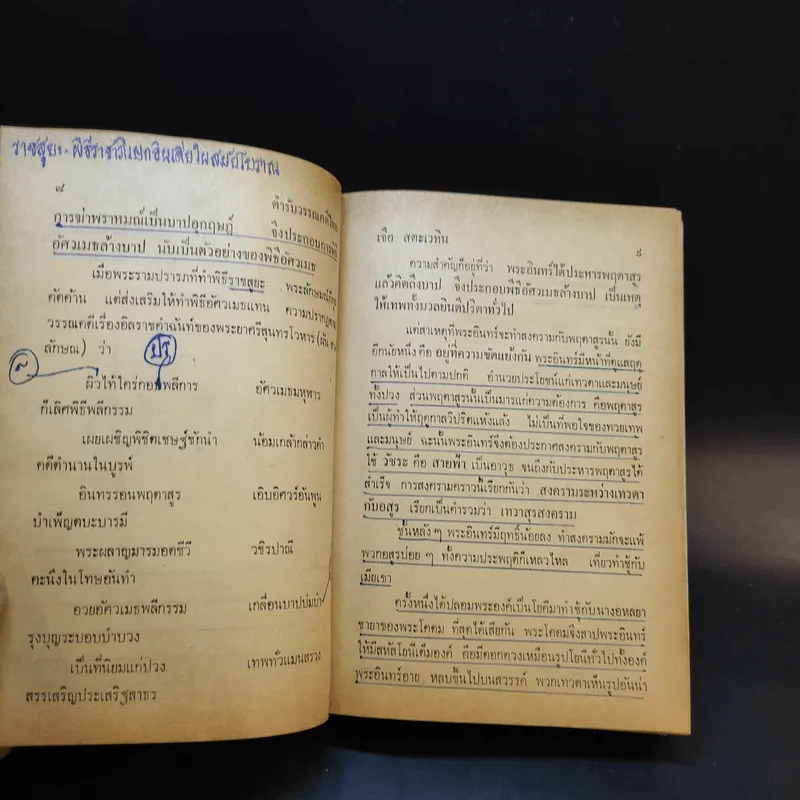 ราชสูยะ-พิธีราชาภิเษกอินเดียในสมัยโบราณ
๘
ตำรับวรรณคดีไทย
การฆ่าพราหมณ์เป็นบาปอุกฤษฎ์ จึงประกอบการพิธี
อัศวเมธล้างบาป นับเป็นตัวอย่างของพิธีอัศวเมธ
เมื่อพระรามปรารภที่ทำพิธีราชสูยะ พระลักษมณ์ทูล
คัดค้าน แต่ส่งเสริมให้ทำพิธีอัศวเมธแทน ความปรากฏตาม
วรรณคดีเรื่องอิลราชคำฉันท์ของพระยาศรีสุนทรโวหาร (ผัน
ลักษณ) ว่า
ปรา
ผิวไท้ใคร่กอบพลีการ อัศวเมธมหุฬาร
ก็เลิศพิธีพลีกรรม
เผยเผชิญพิชิตเชษฐ์ชักนำ น้อมเกล้ากล่าวคำ
คดีตำนานในบูรพ์
อินทรรอนพฤตาสูร เอิบอิศวร์อันพูน
บำเพ็ญตบะบารมี
พระผลาญมารมอดชีวี วชิรปาณี
คะนึงในโทษอันทำ
อวยอัศวเมธพลีกรรม เกลื่อนบาปบ่มบำ
รุงบุญระบอบบำบวง
เป็นที่นิยมแก่ปวง เทพทั่วแมนสรวง
สรรเสริญประเสริฐสาธร
เจือ สตะเวทิน
๙
ความสำคัญก็อยู่ที่ว่า พระอินทร์ได้ประหารพฤตาสูร
แล้วคิดถึงบาป จึงประกอบพิธีอัศวเมธล้างบาป เป็นเหตุ
ให้เทพทั้งมวลยินดีปรีดาทั่วไป
แต่สาเหตุที่พระอินทร์จะทำสงครามกับพฤตาสูรนั้น ยังมี
อีกนัยหนึ่ง คือ อยู่ที่ความขัดแย้งกัน พระอินทร์มีหน้าที่ดูแลฤดู
กาลให้เป็นไปตามปกติ อำนวยประโยชน์แก่เทวดาและมนุษย์
ทั้งปวง ส่วนพฤตาสูรนั้นเป็นมารแก่ความต้องการ คือพฤตาสูร
เป็นผู้ทำให้ฤดูกาลวิปริตแห้งแล้ง ไม่เป็นที่พอใจของทวยเทพ
และมนุษย์ ฉะนั้นพระอินทร์จึงต้องประกาศสงครามกับพฤตาสูร
ใช้ วัชระ คือ สายฟ้า เป็นอาวุธ จนถึงกับประหารพฤตาสูรได้
สำเร็จ การสงครามคราวนี้เรียกกันว่า สงครามระหว่างเทวดา
กับอสูร เรียกเป็นคำรวมว่า เทวาสุรสงคราม
ชั้นหลัง ๆ พระอินทร์มีฤทธิ์น้อยลง ทำสงครามมักจะแพ้
พวกอสูรบ่อย ๆ ทั้งความประพฤติก็เหลวไหล เที่ยวทำชู้กับ
เมียเขา
ครั้งหนึ่งได้ปลอมพระองค์เป็นโยคีมาทำชู้กับนางอหลยา
ชายาของพระโคดม ที่สุดได้เสียกัน พระโคดมจึงสาปพระอินทร์
ให้มีสหัสโยนีเต็มองค์ คือมีดอกดวงเหมือนรูปโยนีทั่วไปทั้งองค์
พระอินทร์อาย หลบขึ้นไปบนสวรรค์ พวกเทวดาเห็นรูปอันน่า